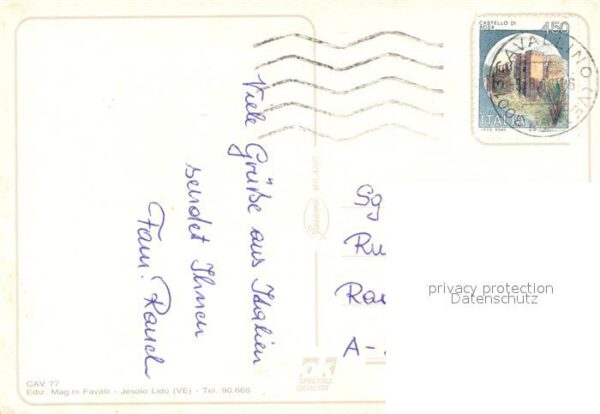 CASTELLO DI
BOSA
450
ITALIA
CAVALLINO (VE)
Viele Grüße aus Italien
sendet Ihnen
Fam. Rauch
Ru
Ra
A-
privacy protection
Datenschutz
CAV 77
Ediz. Mag.ni Favalli - Jesolo Lido (VE) - Tel. 90.666
OK